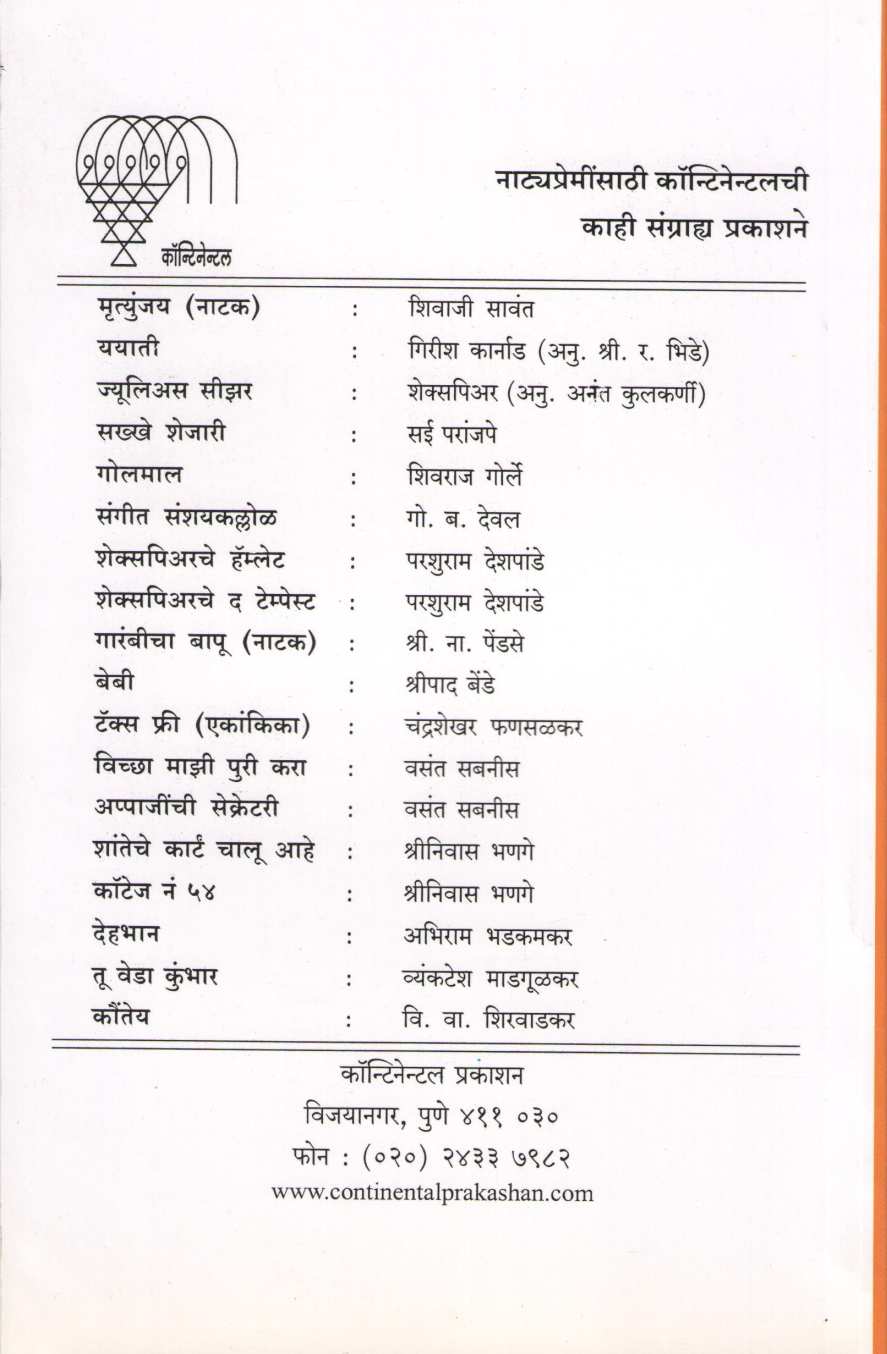 कॉन्टिनेन्टल
नाट्यप्रेमींसाठी कॉन्टिनेन्टलची
काही संग्राह्य प्रकाशने
मृत्युंजय (नाटक) : शिवाजी सावंत
ययाती : गिरीश कार्नाड (अनु. श्री. र. भिडे)
ज्यूलिअस सीझर : शेक्सपिअर (अनु. अनंत कुलकर्णी)
सख्खे शेजारी : सई परांजपे
गोलमाल : शिवराज गोर्ले
संगीत संशयकल्लोळ : गो. ब. देवल
शेक्सपिअरचे हॅम्लेट : परशुराम देशपांडे
शेक्सपिअरचे द टेम्पेस्ट : परशुराम देशपांडे
गारंबीचा बापू (नाटक) : श्री. ना. पेंडसे
बेबी : श्रीपाद बेंडे
टॅक्स फ्री (एकांकिका) : चंद्रशेखर फणसळकर
विच्छा माझी पुरी करा : वसंत सबनीस
अप्पाजींची सेक्रेटरी : वसंत सबनीस
शांतेचे कार्टं चालू आहे : श्रीनिवास भणगे
कॉटेज नं ५४ : श्रीनिवास भणगे
देहभान : अभिराम भडकमकर
तू वेडा कुंभार : व्यंकटेश माडगूळकर
कौंतेय : वि. वा. शिरवाडकर
कॉन्टिनेन्टल प्रकाशन
विजयानगर, पुणे ४११ ०३०
फोन : (०२०) २४३३ ७९८२
www.continentalprakashan.com